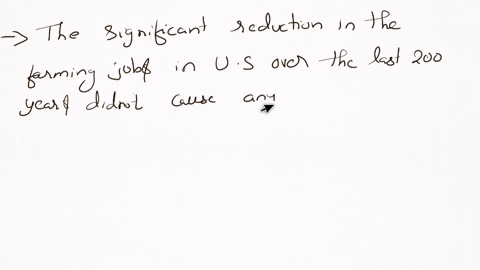 → The significant reduction in the
farming jobs in U.S over the last 200
years didnot cause any